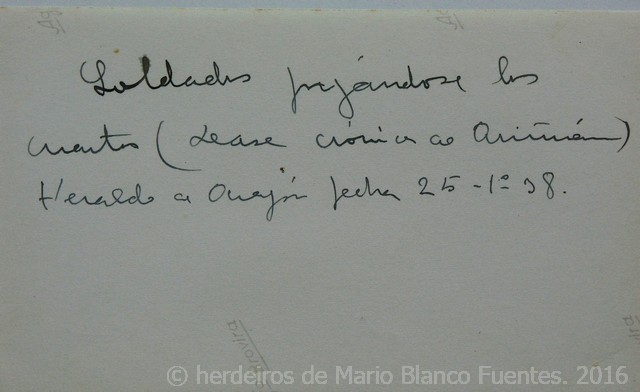 Soldados jugándose los
cuartos (Lease crónica de
Heraldo de Aragón fecha 25-1º 38.
© herdeiros de Mario Blanco Fuentes. 2016